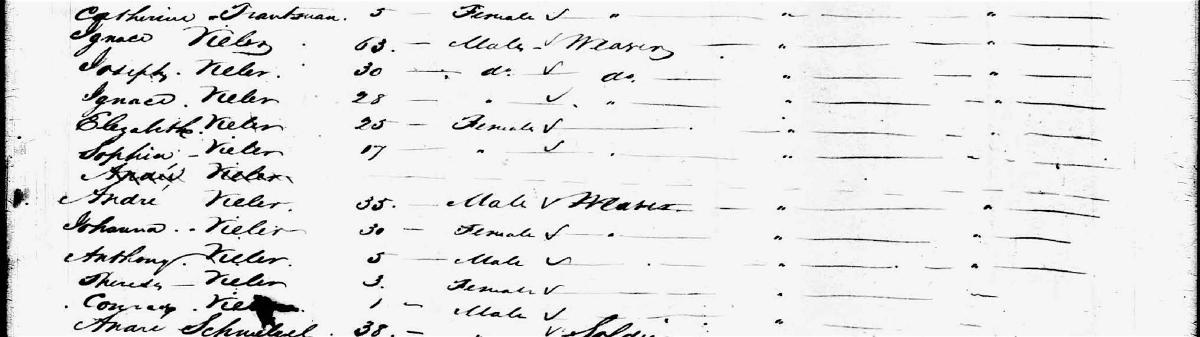 Catherine Trautman. 5 — Female ✓ " " "
Ignace Vieler 63. — Male — ✓ Weaver — " — " —
Joseph Vieler. 30 — do ✓ do. — " — " —
Ignace Vieler 28 — " ✓ " — " — " —
Elezabeth Vieler 25 — Female ✓ — " — " —
Sophia — Vieler 17 — " ✓ — " — " —
André Vieler
André Vieler. 35. — Male ✓ Weaver — " — " —
Johanna Vieler 30 — Female ✓ " — " — " —
Anthony Vieler. 5 — Male ✓ — " — " —
Theresa — Vieler 3. Female ✓ — " — " —
Conrad Vieler 1 — Male ✓ — "
André 38. — " ✓